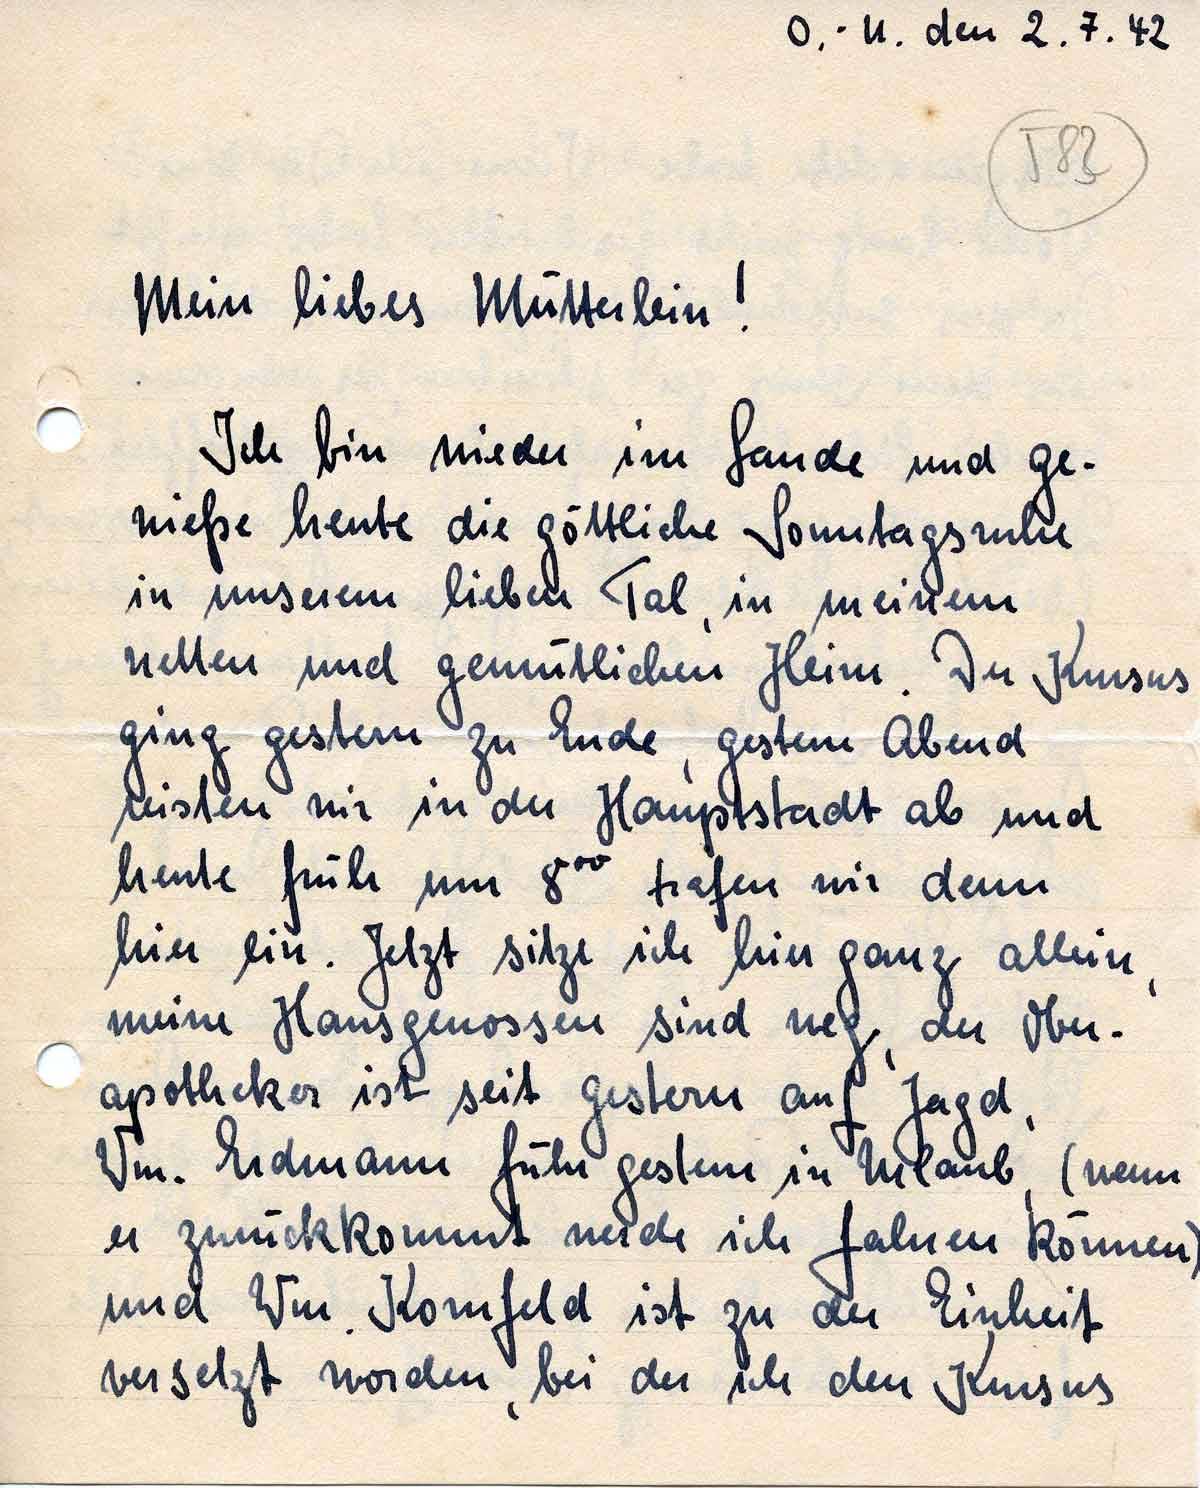 O.-U. den 2.7.42
I 83
Mein liebes Mütterlein!
Ich bin wieder im Lande und ge-
nieße heute die göttliche Sonntagsruhe
in unserem lieben Tal, in meinem
netten und gemütlichen Heim. Der Kursus
ging gestern zu Ende, gestern Abend
reisten wir in der Hauptstadt ab und
heute früh um 8⁰⁰ trafen wir denn
hier ein. Jetzt sitze ich hier ganz allein,
meine Hausgenossen sind weg, der Ober-
apotheker ist seit gestern auf Jagd,
Wm. Erdmann fuhr gestern in Urlaub, (wenn
er zurückkommt werde ich fahren können)
und Wm. Kornfeld ist zu der Einheit
versetzt worden, bei der ich den Kursus